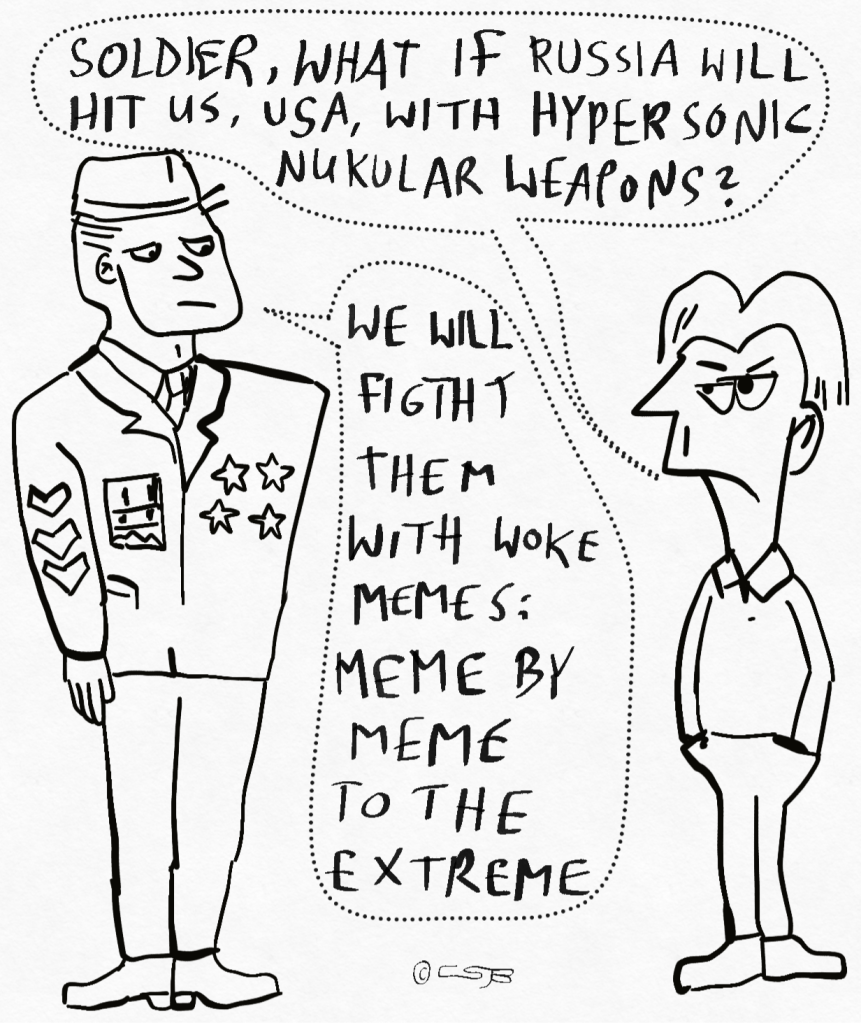 SOLDIER, WHAT IF RUSSIA WILL
HIT US, USA, WITH HYPERSONIC
NUKULAR WEAPONS?
WE WILL
FIGTHT
THEM
WITH WOKE
MEMES:
MEME BY
MEME
TO THE
EXTREME
© CSB